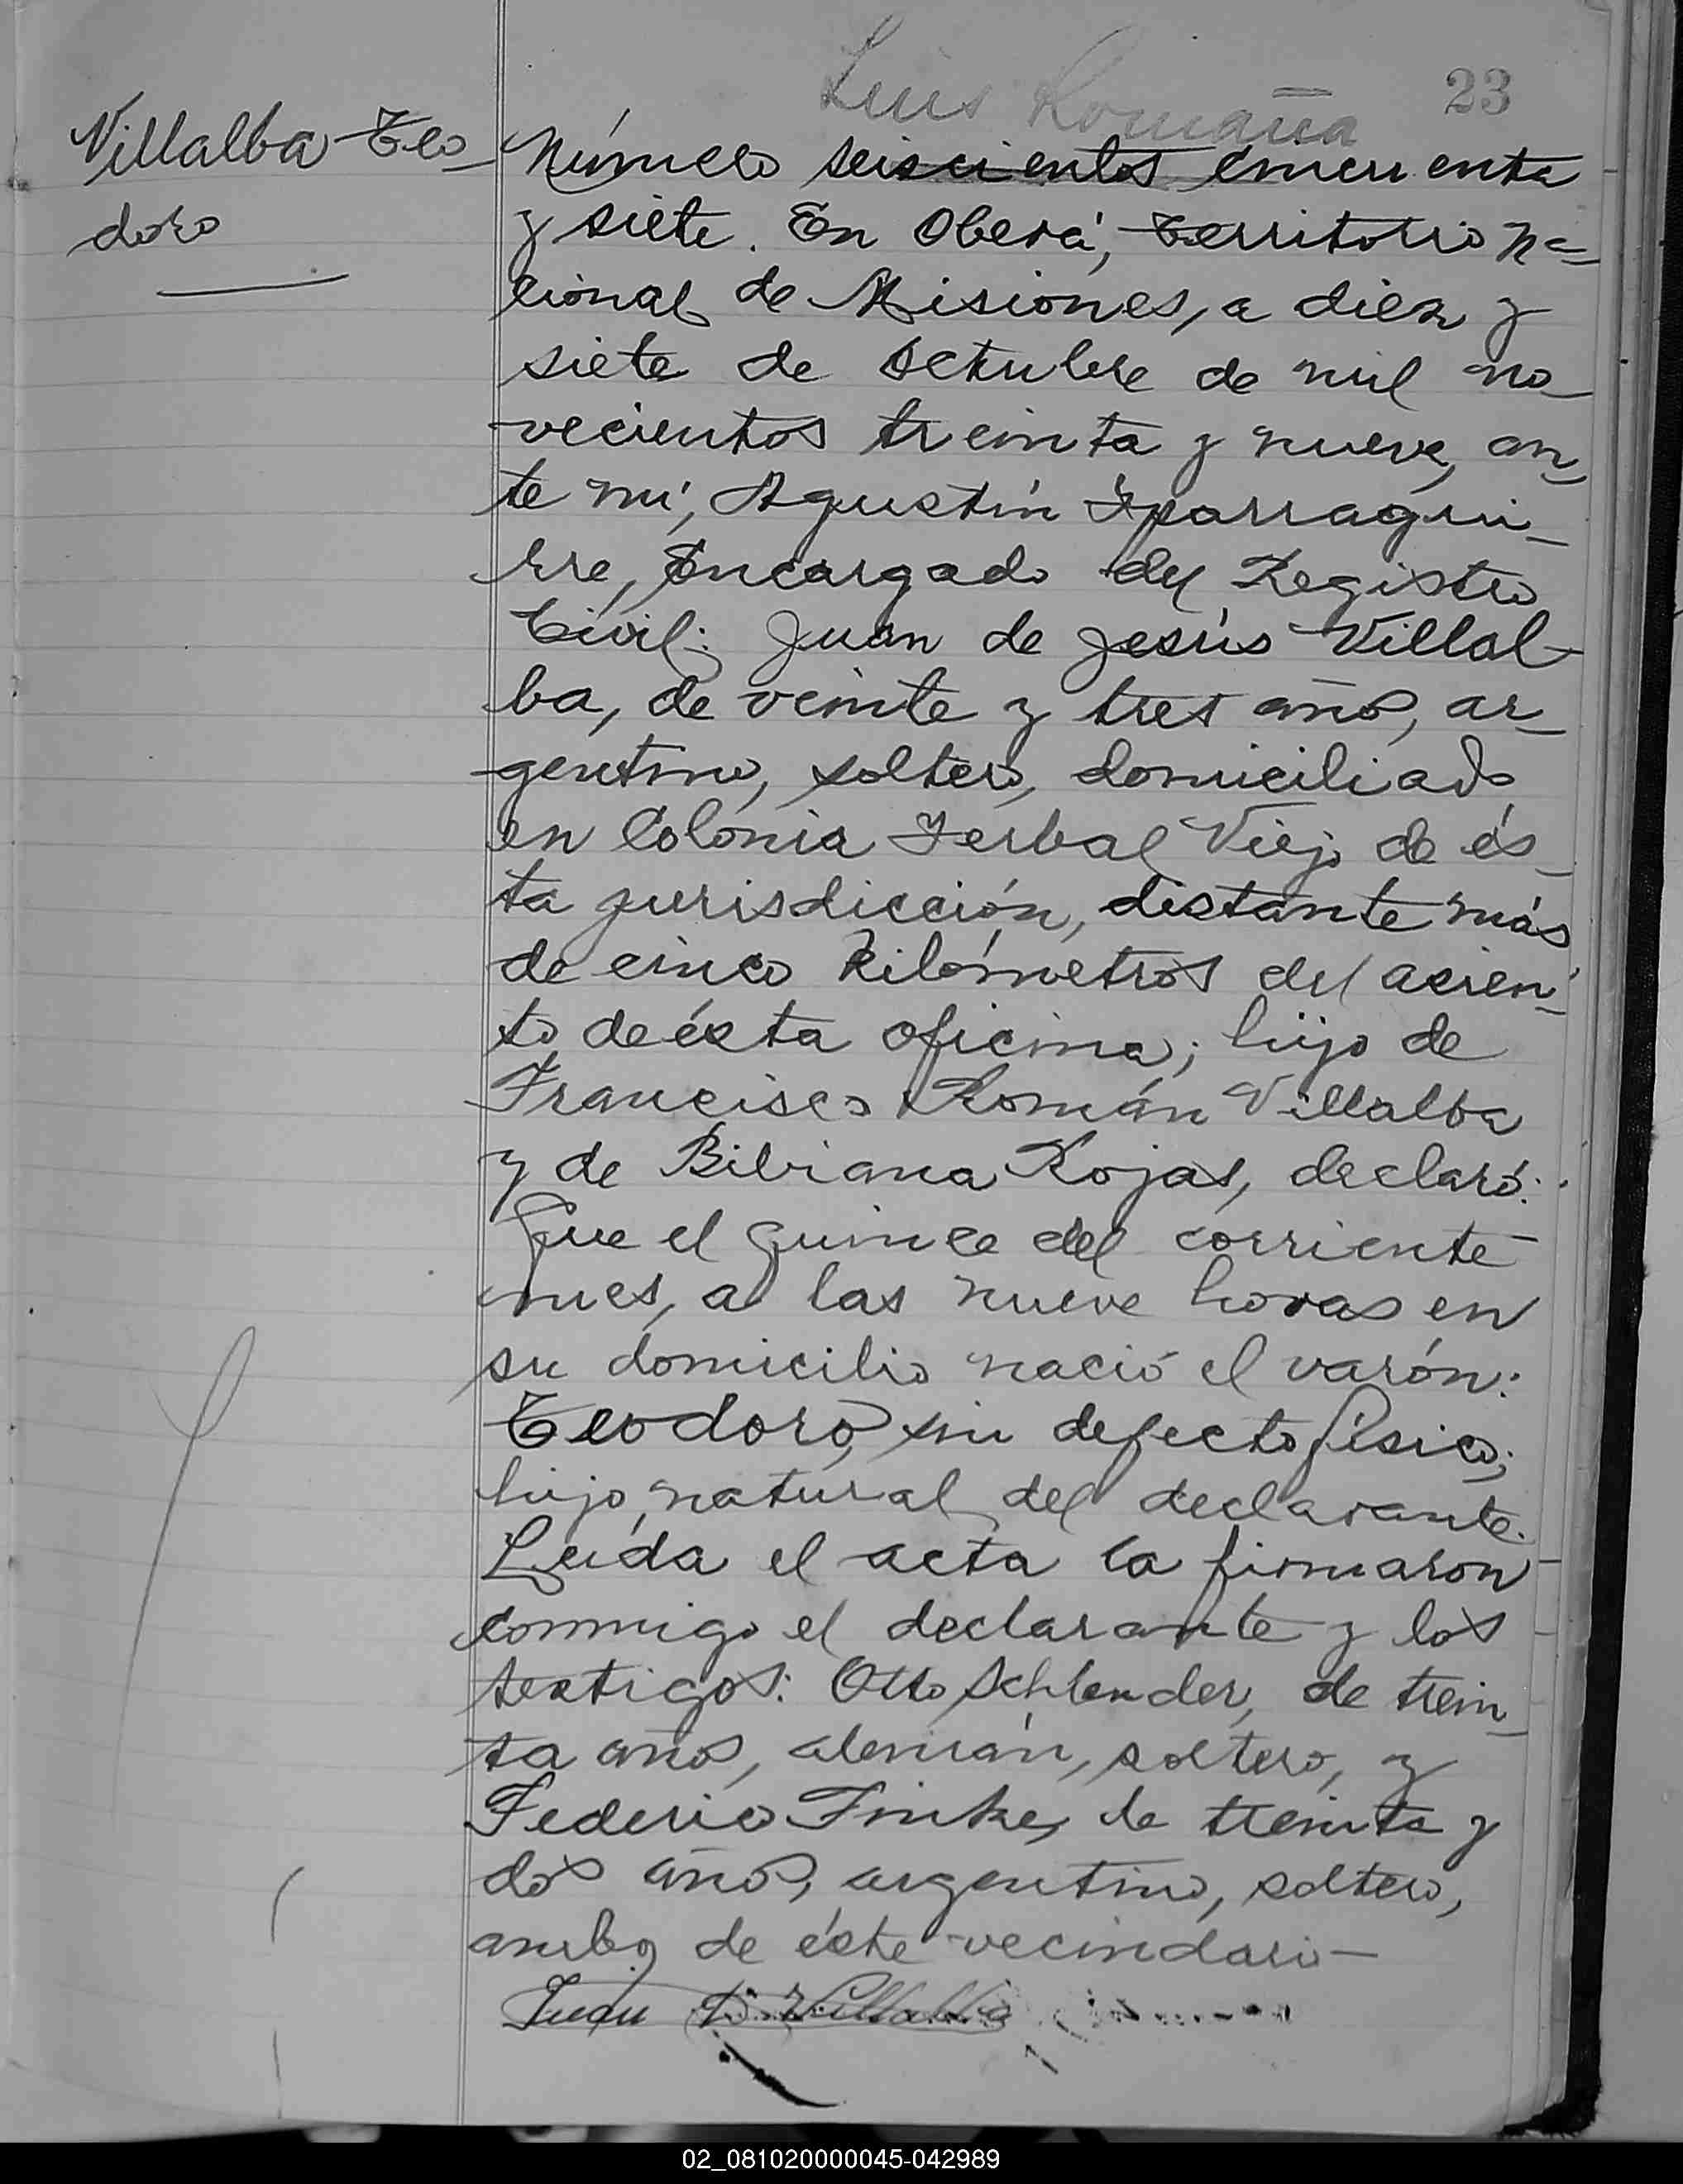 Luis Romaña
23
Villalba Teo
doro
Número seiscientos cincuenta
y siete. En Oberá, Territorio Na-
cional de Misiones, a diez y
siete de octubre de mil no-
vecientos treinta y nueve, an-
te mí, Agustín Yparragui-
rre, Encargado del Registro
Civil: Juan de Jesús Villal-
ba, de veinte y tres años, ar-
gentino, soltero, domiciliado
en Colonia Yerbal Viejo de és-
ta jurisdicción, distante más
de cinco kilómetros del asien-
to de ésta oficina; hijo de
Francisco Román Villalba
y de Bibiana Rojas, declaró:
Que el quince del corriente
mes, a las nueve horas en
su domicilio nació el varón:
Teodoro, sin defecto físico;
hijo natural del declarante.
Leída el acta la firmaron
conmigo el declarante y los
testigos: Otto Schlender, de trein-
ta años, alemán, soltero, y
Federico Finke, de treinta y
dos años, argentino, soltero,
ambos de éste vecindario—
Juan D. Villalba
02_081020000045-042989